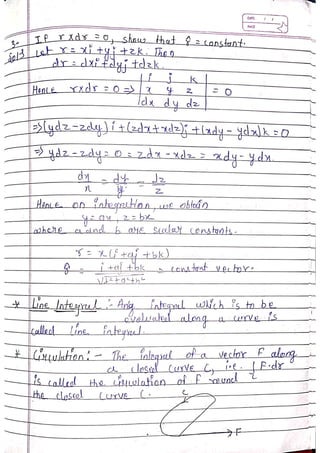 If r×dr = 0, show that r̂ = constant.
Let r = xi + yj + zk. Then
dr = dxi + dyj + dzk.
Hence r×dr = 0 ⇒ | i j k |
| x y z | = 0
| dx dy dz |
⇒ (ydz - zdy) i + (zdx + xdz)j + (xdy - ydx)k = 0
⇒ ydz - zdy = 0 = zdx - xdz = xdy - ydx.
dx/x = dy/y = dz/z
Hence on integration, we obtain
y = ax, z = bx
where a and b are scalar constants.
r = x(i + aj + bk)
r̂ = i + aj + bk / √1²+a²+b² = constant vector.
* Line Integral :- Any integral which is to be
evaluated along a curve is
called line integral.
* Circulation :- The integral of a vector F along
a closed curve C, i.e. ∫ F.dr
c
is called the circulation of F round
the closed curve C.
c
→F